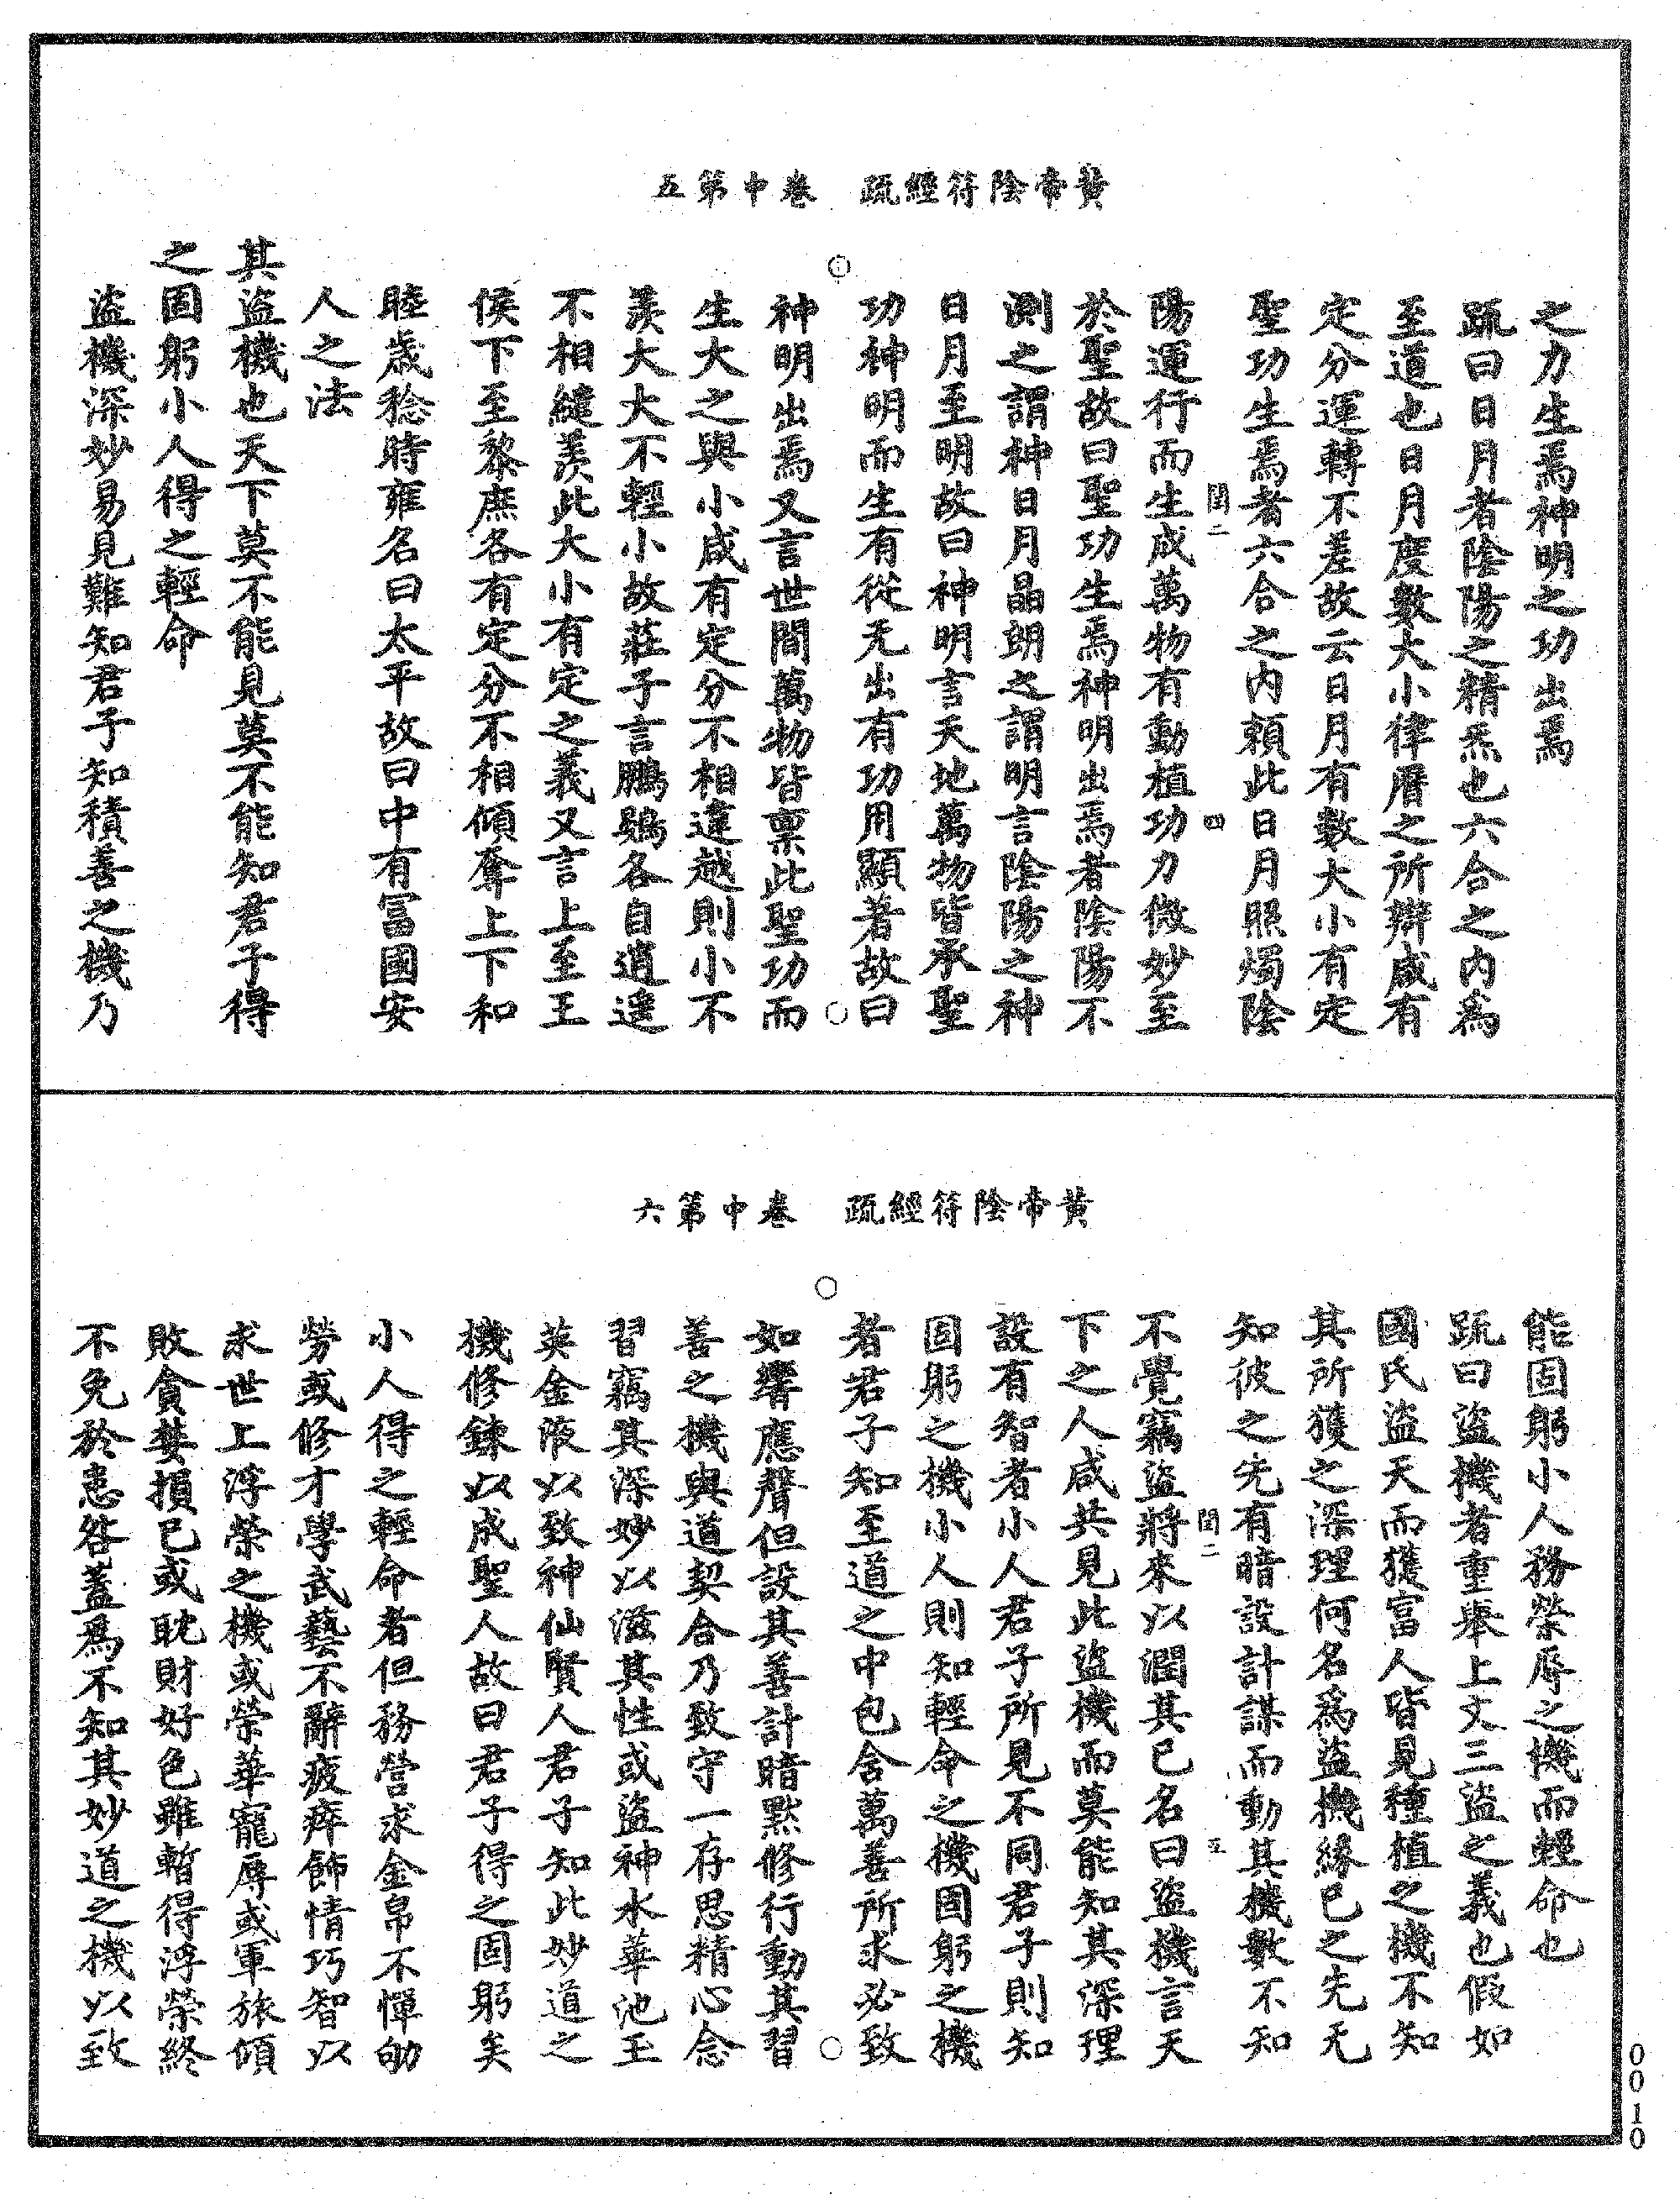 黃帝陰符經疏　卷中第五
之力生焉神明之功出焉
疏曰日月者陰陽之精炁也六合之內爲
至道也日月度數大小律曆之所辯咸有
定分運轉不差故云日月有數大小有定
聖功生焉者六合之內賴此日月照燭陰
閏二　四
陽運行而生成萬物有動植功力微妙至
於聖故曰聖功生焉神明出焉者陰陽不
測之謂神日月晶朗之謂明言陰陽之神
日月至明故曰神明言天地萬物皆承聖
功神明而生有從无出有功用顯著故曰
神明出焉又言世間萬物皆稟此聖功而
生大之與小咸有定分不相違越則小不
羨大大不輕小故莊子言鵬鷃各自逍遙
不相繾羨此大小有定之義又言上至王
侯下至黎庶各有定分不相傾奪上下和
睦歲稔時雍名曰太平故曰中有冨國安
人之法
其盜機也天下莫不能見莫不能知君子得
之固躬小人得之輕命
盜機深妙易見難知君子知積善之機乃
黃帝陰符經疏　卷中第六
能固躬小人務榮辱之機而輕命也
疏曰盜機者重舉上文三盜之義也假如
國氏盜天而獲富人皆見種植之機不知
其所獲之深理何名爲盜機緣已之先无
知彼之先有暗設計謀而動其機數不知
閏二　五
不覺竊盜將來以潤其已名曰盜機言天
下之人咸共見此盜機而莫能知其深理
設有智者小人君子所見不同君子則知
固躬之機小人則知輕命之機固躬之機
者君子知至道之中包含萬善所求必致
如響應聲但設其善計暗默修行動其習
善之機與道契合乃致守一存思精心念
習竊其深妙以滋其性或盜神水華池玉
英金液以致神仙賢人君子知此妙道之
機修鍊以成聖人故曰君子得之固躬矣
小人得之輕命者但務營求金帛不憚劬
勞或修才學武藝不辭疲瘁飾情巧智以
求世上浮榮之機或榮華寵辱或軍旅傾
敗貪婪損已或耽財好色雖暫得浮榮終
不免於患咎蓋爲不知其妙道之機以致
0010